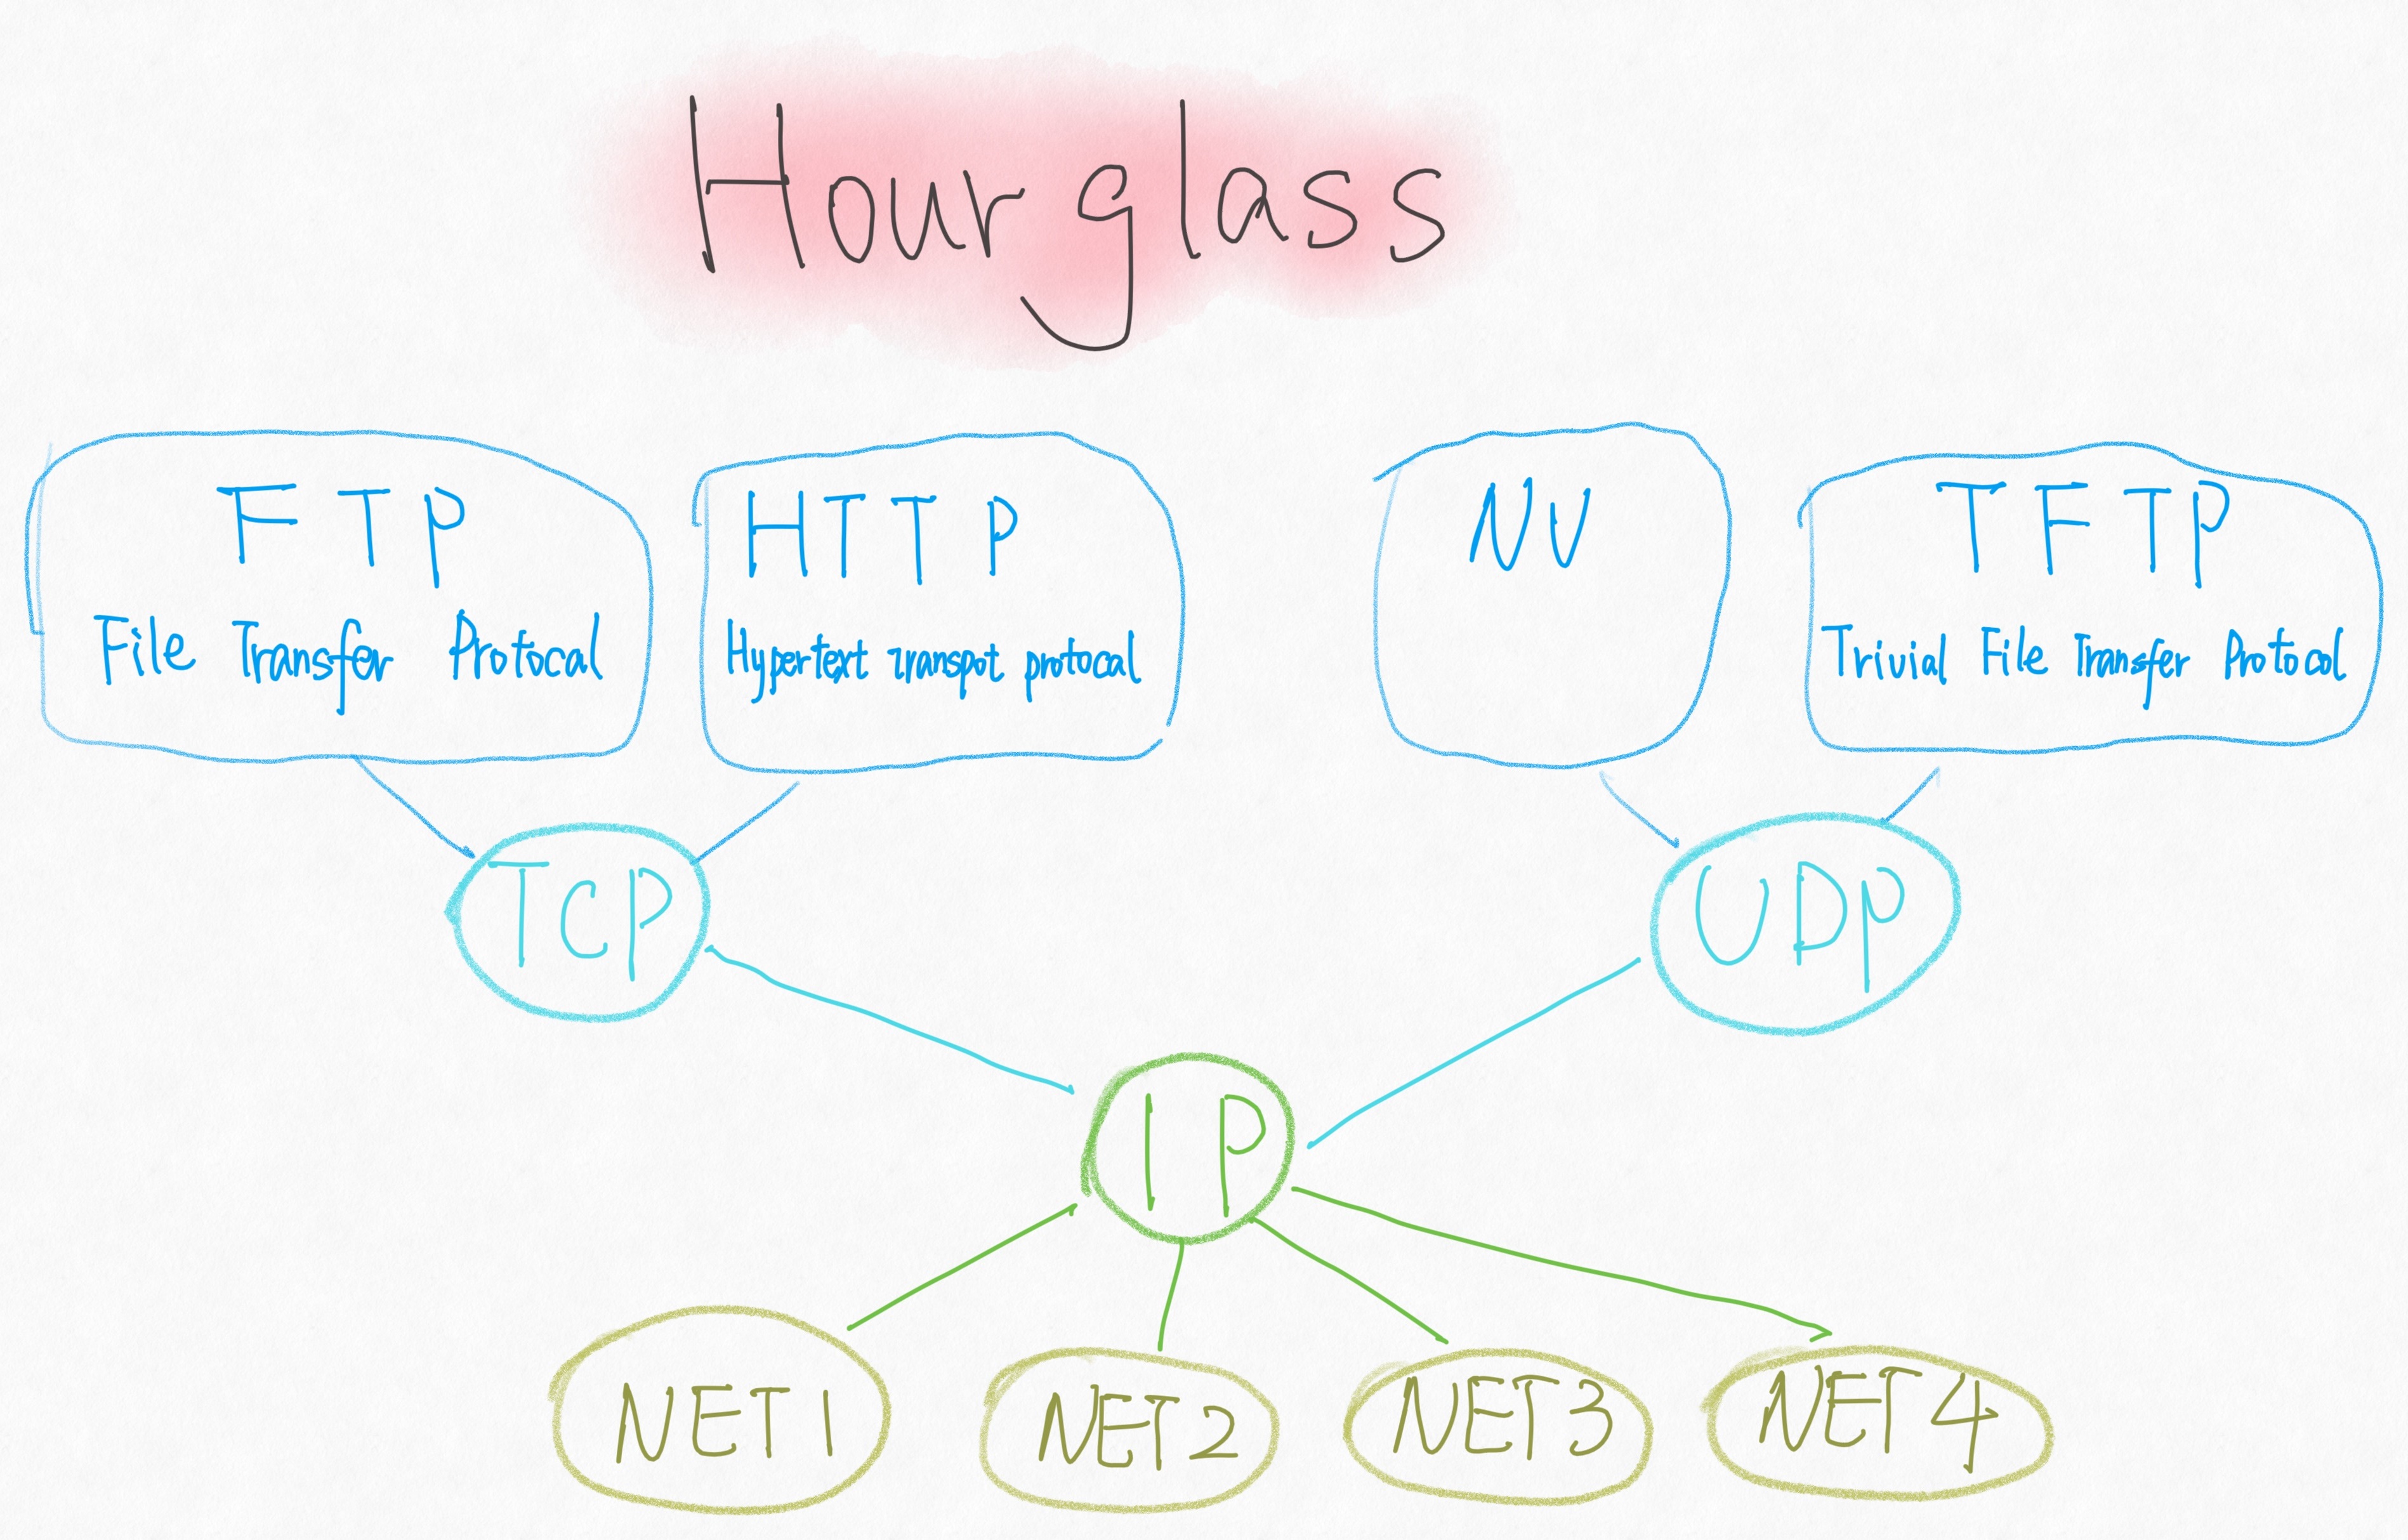 Hourglass
FTP
File Transfer Protocal
HTTP
Hypertext Transpot protocal
NV
TFTP
Trivial File Transfer Protocol
TCP
UDP
IP
NET1
NET2
NET3
NET4